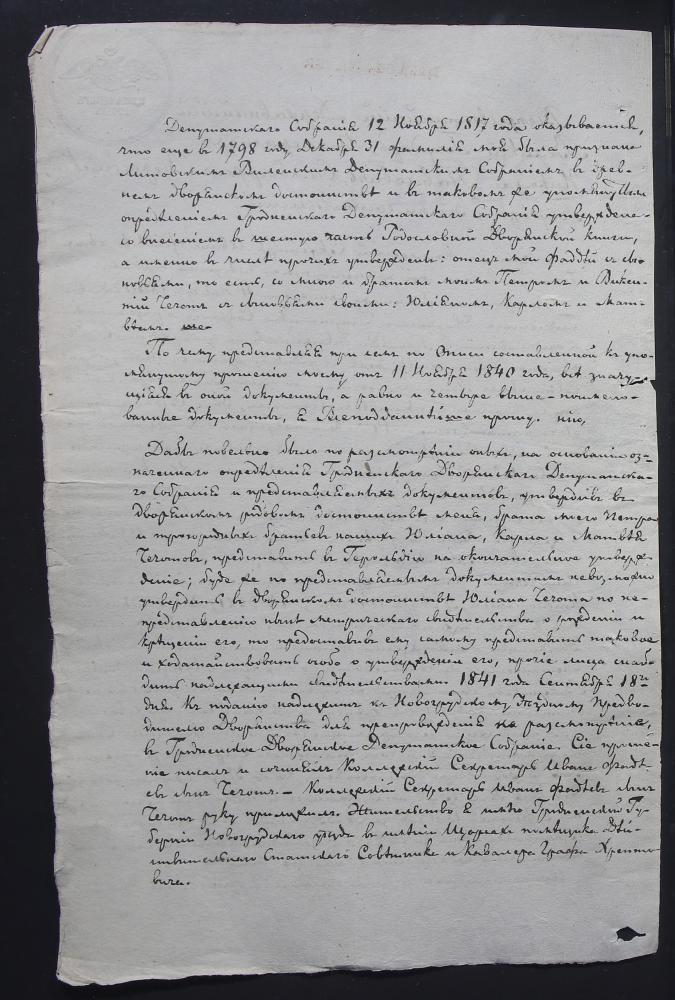 Депутатскаго Собранія 12 Ноября 1817 года оказывается,
что еще въ 1798 году Декабря 31 фамилія моя была признана
Литовскимъ Виленскимъ Депутатскимъ Собраніемъ въ древ-
немъ дворянскомъ достоинствѣ и въ таковомъ же упомянутымъ
опредѣленіемъ Гродненскаго Депутатскаго Собранія утверждена
со внесеніемъ въ шестую часть Родословной Дворянской книги,
а именно въ числѣ прочихъ утверждены: отецъ мой Фаддѣй съ сы-
новьями, то есть, со мною и братьями моими Петромъ и Викен-
тій Чечотъ съ сыновьями своими: Юліаномъ, Карломъ и Мат-
вѣемъ.
По чему представляя при семъ по Описи составленной къ упо-
мянутому прошенію моему отъ 11 Ноября 1840 года, всѣ значу-
щіеся въ оной документы, а равно и четыре выше-поимено-
ванные документы, я Всеподданнѣйше прошу.
Дабы повелѣно было по разсмотрѣніи оныхъ, на основаніи оз-
наченнаго опредѣленія Гродненскаго Дворянскаго Депутатска-
го Собранія и представляемыхъ документовъ, утвердивъ въ
дворянскомъ родовомъ достоинствѣ меня, брата моего Петра
и троюродныхъ братьевъ нашихъ Юліана, Карла и Матвѣя
Чечотовъ, представить въ Герольдію на окончательное утверж-
деніе; буде же по представляемымъ документамъ невозможно
утвердить въ дворянскомъ достоинствѣ Юліана Чечота по не-
представленію нынѣ метрическаго свидѣтельства о рожденіи и
крещеніи его, то предоставивъ ему самому представить таковое
и ходатайствовать особо о утвержденіи его, прочіе лица снаб-
дить надлежащими свидѣтельствами. 1841 года Сентября 18го
дня. Къ поданію надлежитъ къ Новогрудскому Уѣздному Предво-
дителю Дворянства для препровожденія на разсмотрѣніе,
въ Гродненское Дворянское Депутатское Собраніе. Сіе проше-
ніе писалъ и сочинялъ Коллежскій Секретарь Иванъ Фаддѣ-
евъ сынъ Чечотъ. — Коллежскій Секретарь Иванъ Фаддѣевъ сынъ
Чечотъ руку приложилъ. Жительство я имѣю Гродненской Гу-
берніи Новогрудскаго уѣзда въ имѣніи Щорсахъ помѣщика Дѣй-
ствительнаго Статскаго Совѣтника и Кавалера Графа Хрепто-
вича.